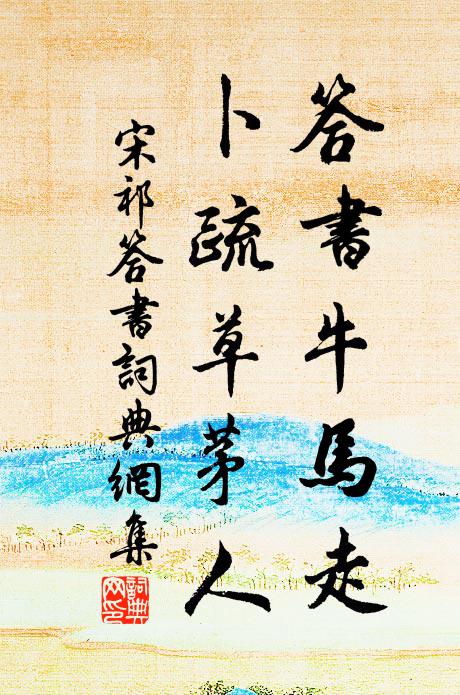 答書牛馬走
卜疏草茅人
宋祁答書詞典網集
詞典网印